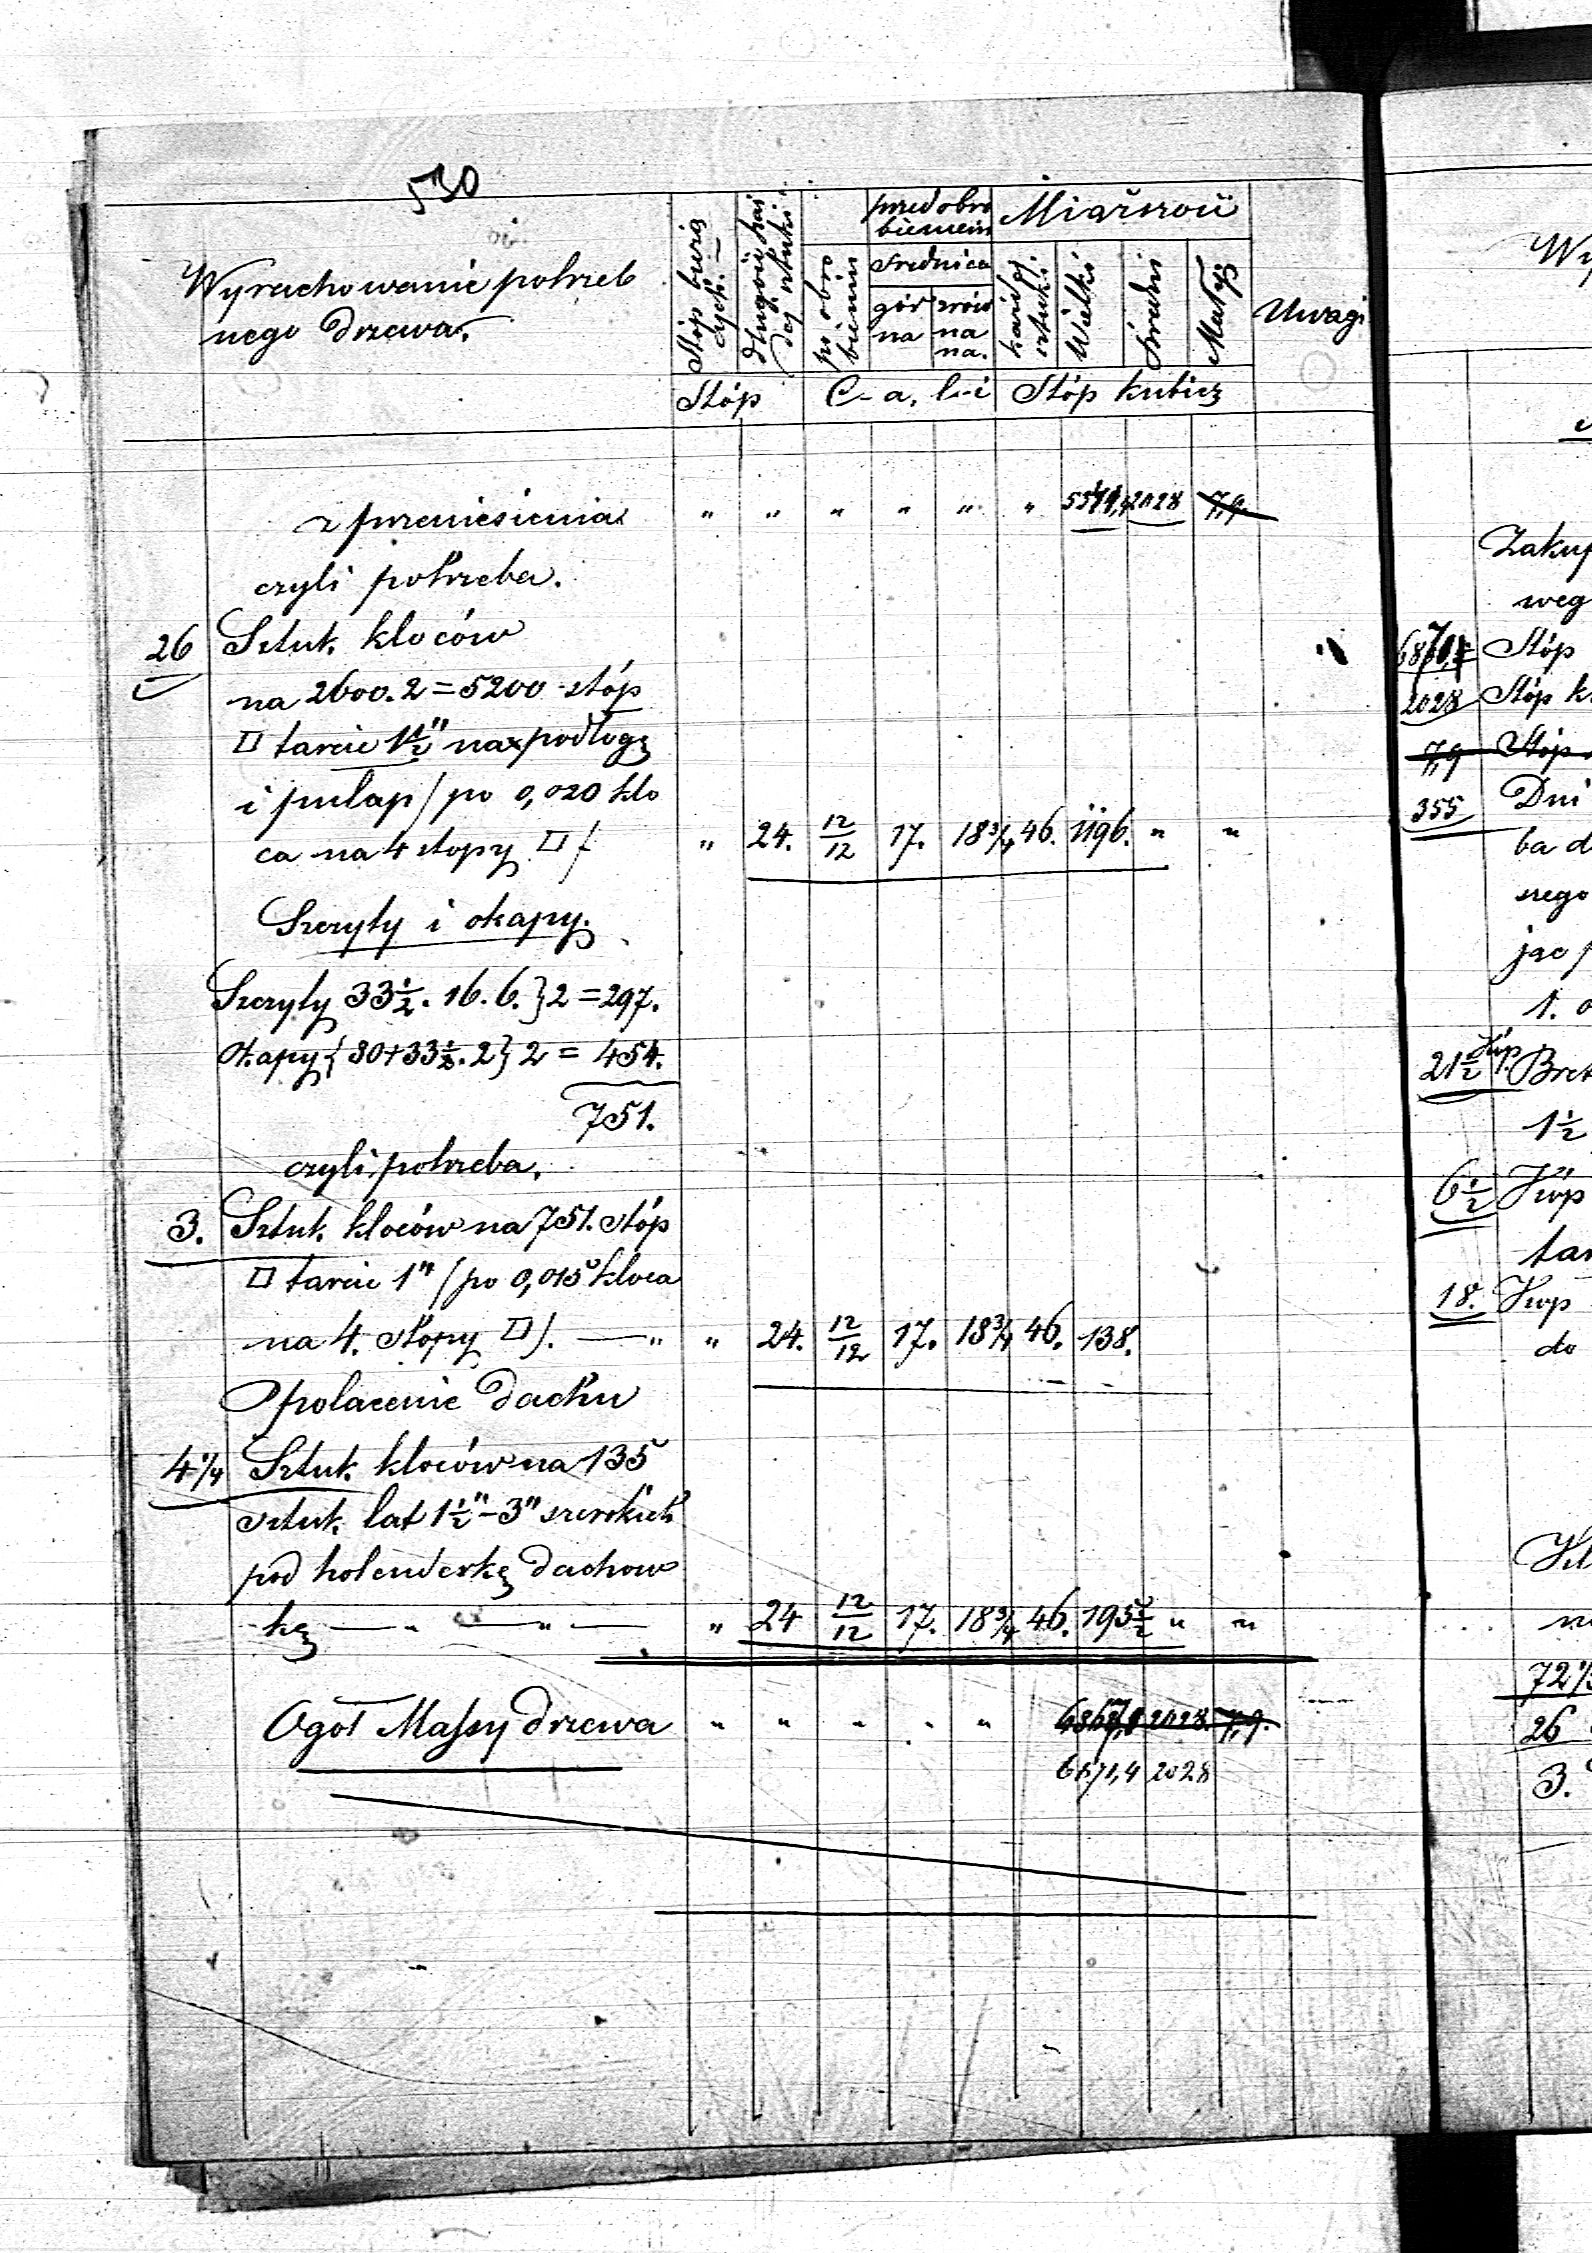 530
Wyrachowanie potrzeb
nego drzewa.
Stóp bieżą
cych.
długość każ
dej sztuki
po obro
bieniu
przed obro
bieniem
średnica
gór
na
zrów
na
na.
Miąższość
każdej
sztuki
Wielki
Średni
Mały
Uwagi
Stóp C-a, l-i Stóp kubicz
z przeniesienia " " " " " " 2028 7,9.
czyli potrzeba.
26 Sztuk. kloców
na 2600.2=5200 stóp
□ tarcic 1½" na podłogę
i pułap / po 0,020 klo
ca na 4 stopy □ /. " 24. 12/12 17. 18¾ 46. 1196. " "
Szczyty i okapy.
Szczyty 33½. 16. 6.} 2 = 297.
Okapy { 80+33½. 2} 2 = 454.
751.
czyli potrzeba.
3. Sztuk. kloców na 751. stóp
□ tarcic 1" / po 0,015 kloca
na 4. stopy □ /. — " " 24. 12/12 17. 18¾ 46. 138.
Opołacenie dachu
4¼ Sztuk. kloców na 135
sztuk. łat 1½"-3" szerokich
pod holenderkę dachow
kę — " — " — " 24 12/12 17. 18¾ 46. 195½ " "
Ogół Massy drzewa " " " " " 2028. 7,9.
6871,4 2028
Wy
Zakup
weg
Stóp
2028 Stóp k
7,9 Stóp
355 Dni
ba d
szego
jąc p
1. o
21½ kóp. Bret
1½
6½ Kóp
tar
18. Kóp
do
72
26
3.